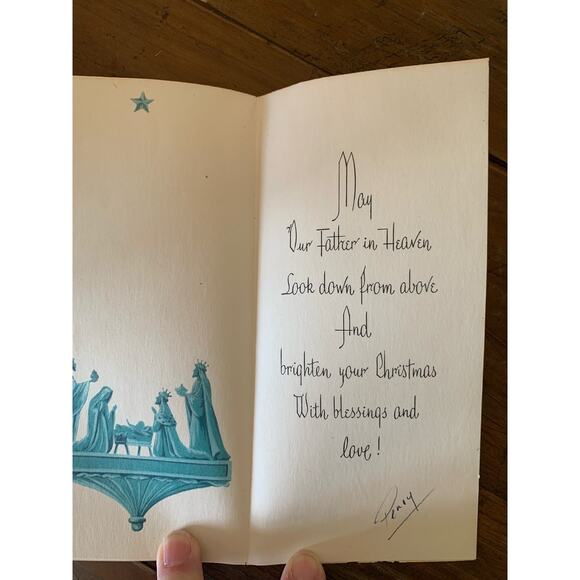 May
Our Father in Heaven
Look down from above
And
brighten your Christmas
With blessings and
love!